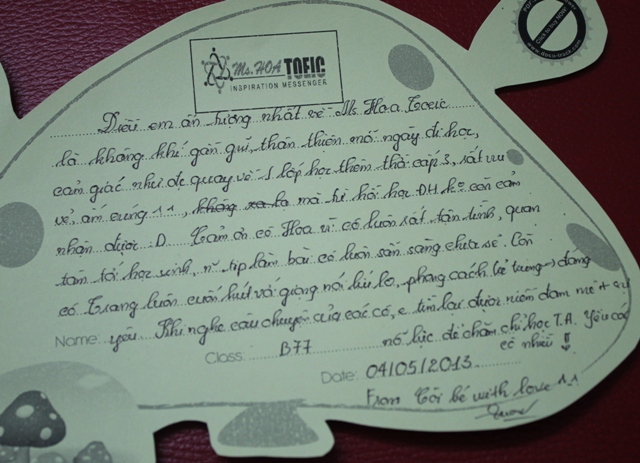 Ms. HOA TOEIC
INSPIRATION MESSENGER
Điều em ấn tượng nhất về Ms Hoa Toeic
là không khí gần gũi, thân thiện mỗi ngày đi học,
cảm giác như đc quay về 1 lớp học thêm thời cấp 3, rất vui
vẻ, ấm cúng ^^, không xa lạ mà từ hồi học ĐH ko còn cảm
nhận được :D Cảm ơn cô Hoa vì cô luôn rất tận tình, quan
tâm tới học sinh, n~ tip làm bài cô luôn sẵn sàng chia sẻ. Còn
cô Trang luôn cuốn hút với giọng nói líu lo, phong cách dễ thương -> đáng
Name: yêu. Khi nghe câu chuyện của các cô, e tìm lại được niềm đam mê + sự
Class: B77 nỗ lực để chăm chỉ học T.A. Yêu các
cô nhiều !!
Date: 04/05/2013
From Cô bé with love ^^